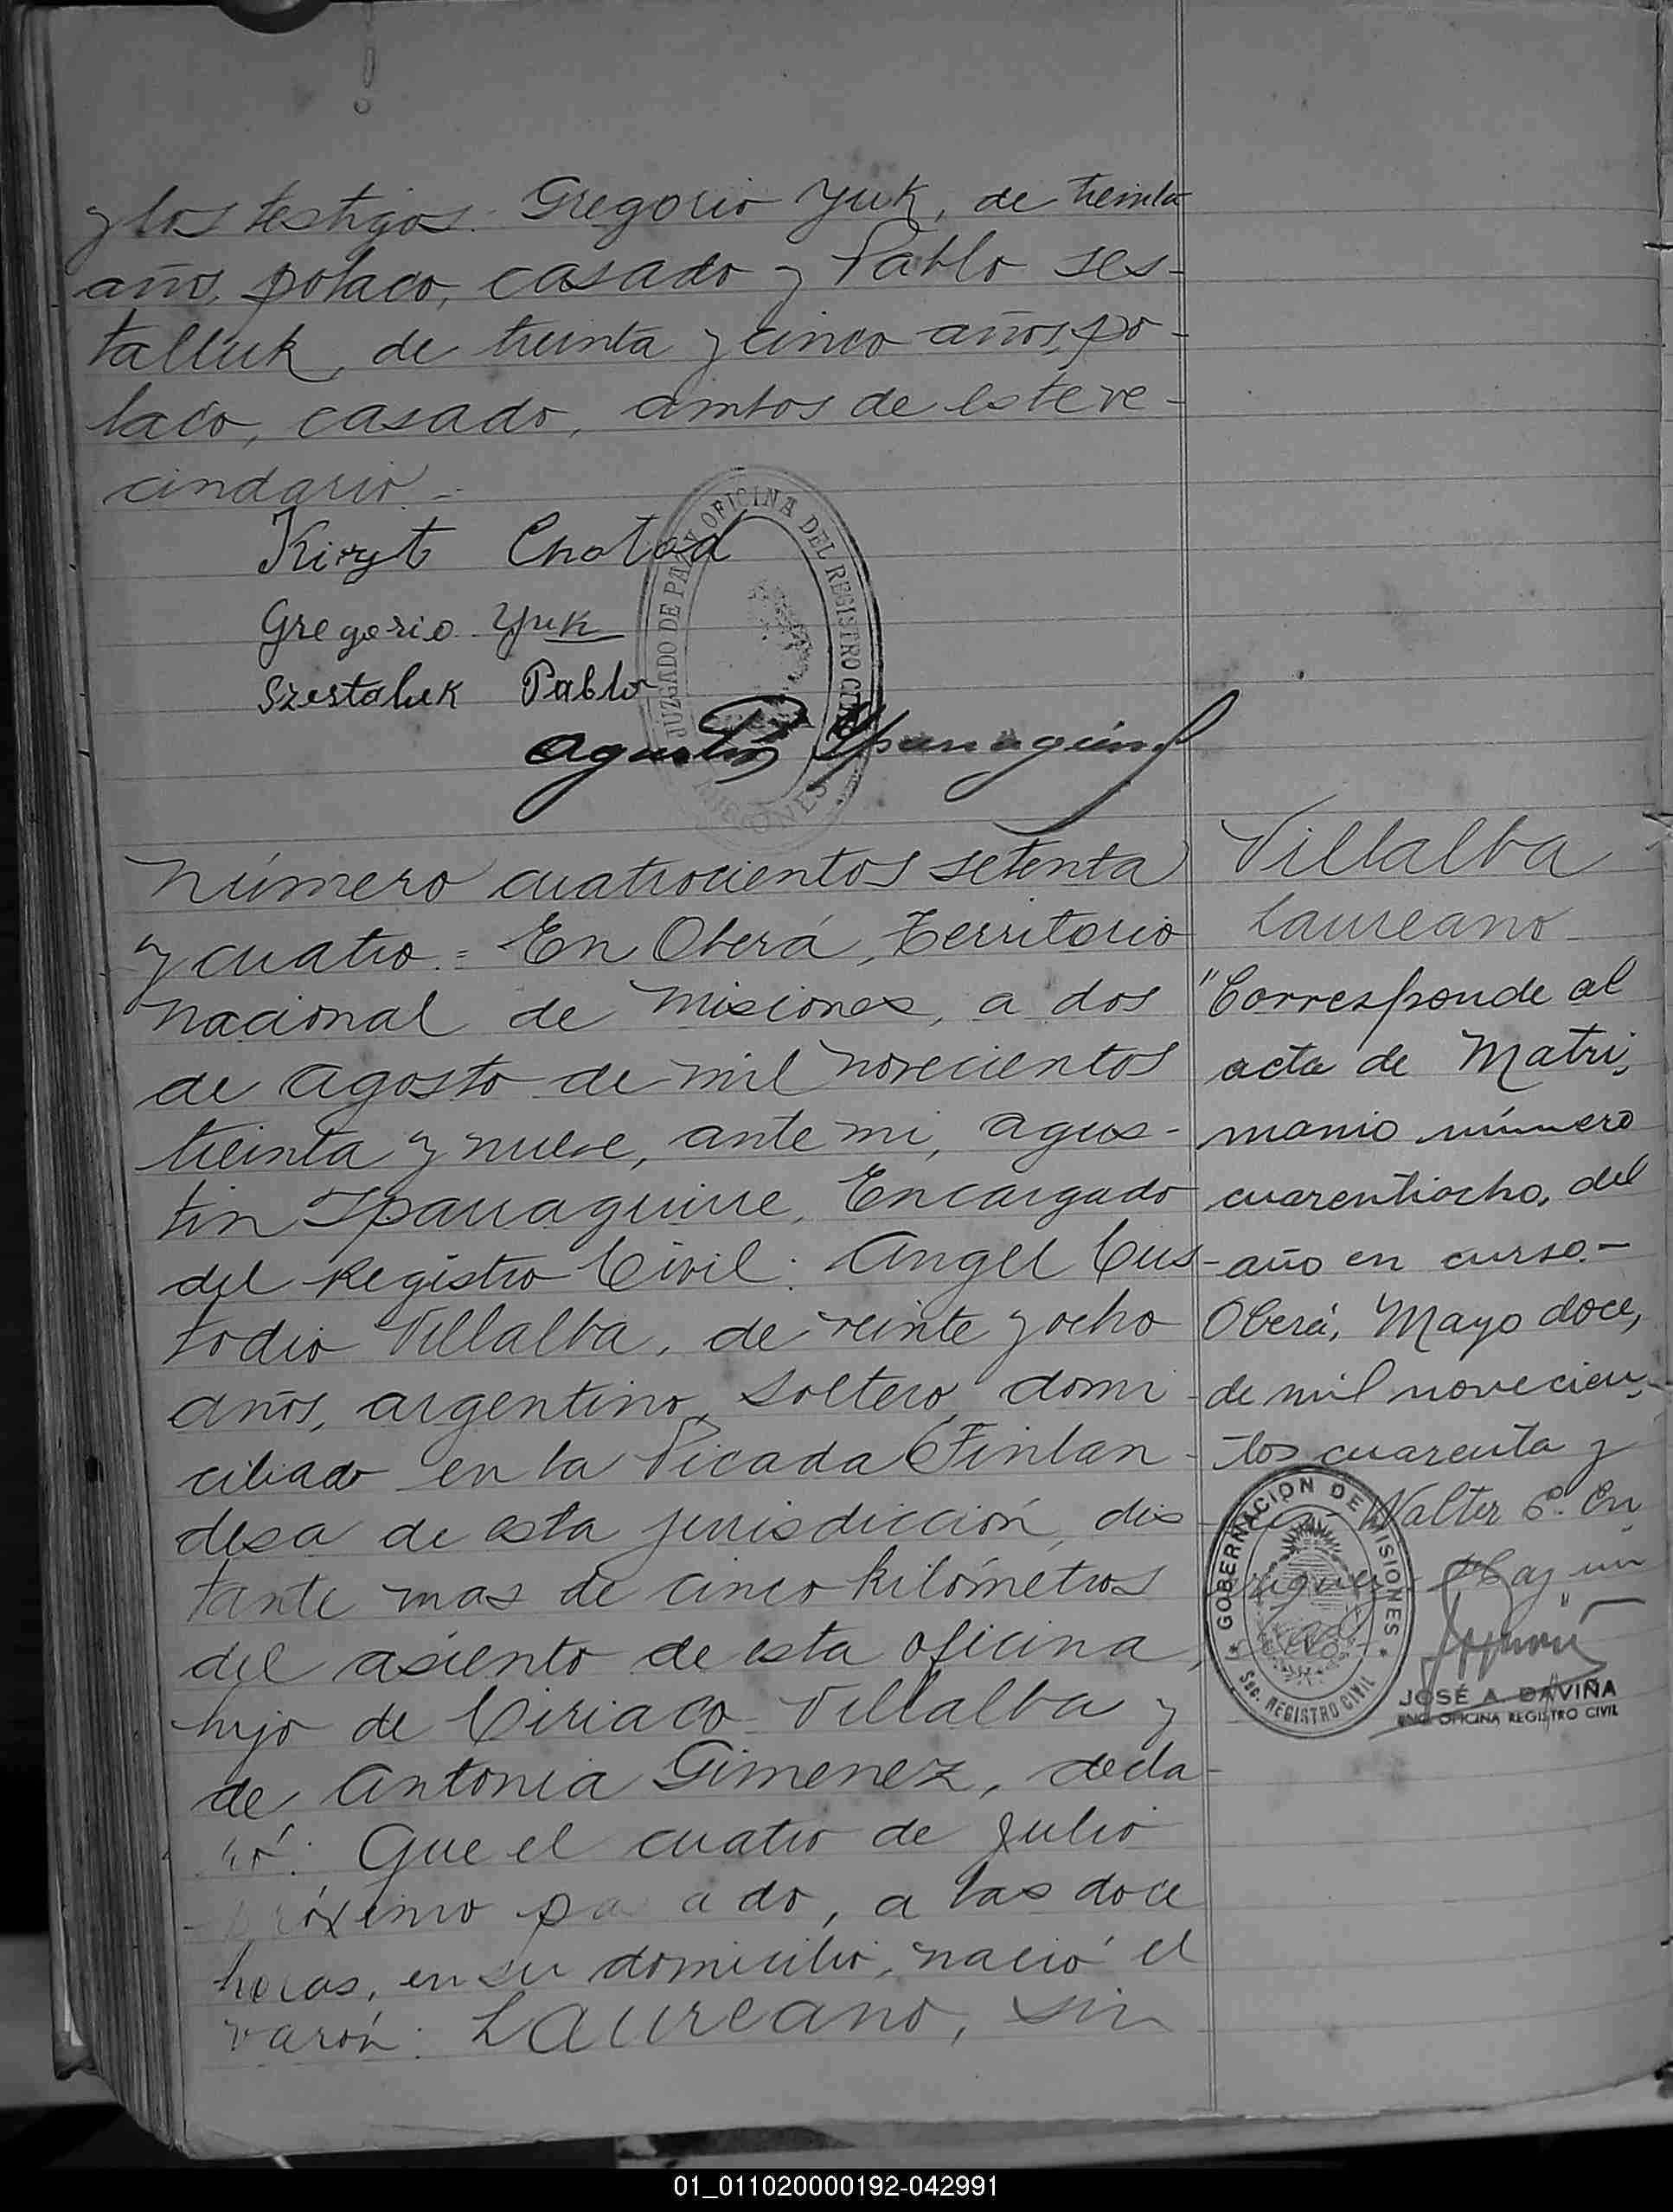 y los testigos: Gregorio Yuk, de treinta
años, polaco, casado y Pablo Ses-
talluk, de treinta y cinco años, po-
laco, casado, ambos de este ve-
cindario.-
Kiryt Chotad
Gregorio Yuk
Szestaluk Pablo
Agustin Yparraguirre
JUZGADO DE PAZ Y OFICINA DEL REGISTRO CIVIL
MISIONES
Número cuatrocientos setenta
y cuatro.= En Oberá, Territorio
Nacional de Misiones, a dos
de Agosto de mil novecientos
treinta y nueve, ante mi, Agus-
tin Yparraguirre, Encargado
del Registro Civil: Angel Cus-
todio Villalba, de veinte y ocho
años, argentino, soltero, domi-
ciliado en la Picada Finlan-
desa de esta jurisdicción, dis-
tante mas de cinco kilómetros
del asiento de esta oficina,
hijo de Ciriaco Villalba y
de Antonia Gimenez, decla-
ró: Que el cuatro de Julio
próximo pasado, a las doce
horas, en su domicilio, nació el
varón: Laureano, sin
Villalba
Laureano
"Corresponde al
acta de Matri-
monio número
cuarentiocho, del
año en curso.-
Oberá, Mayo doce,
de mil novecien-
tos cuarenta y
Walter C. En
riquez Hay un
GOBERNACION DE MISIONES
Sec. REGISTRO CIVIL
JOSÉ A. DAVIÑA
ENC. OFICINA REGISTRO CIVIL
01_011020000192-042991